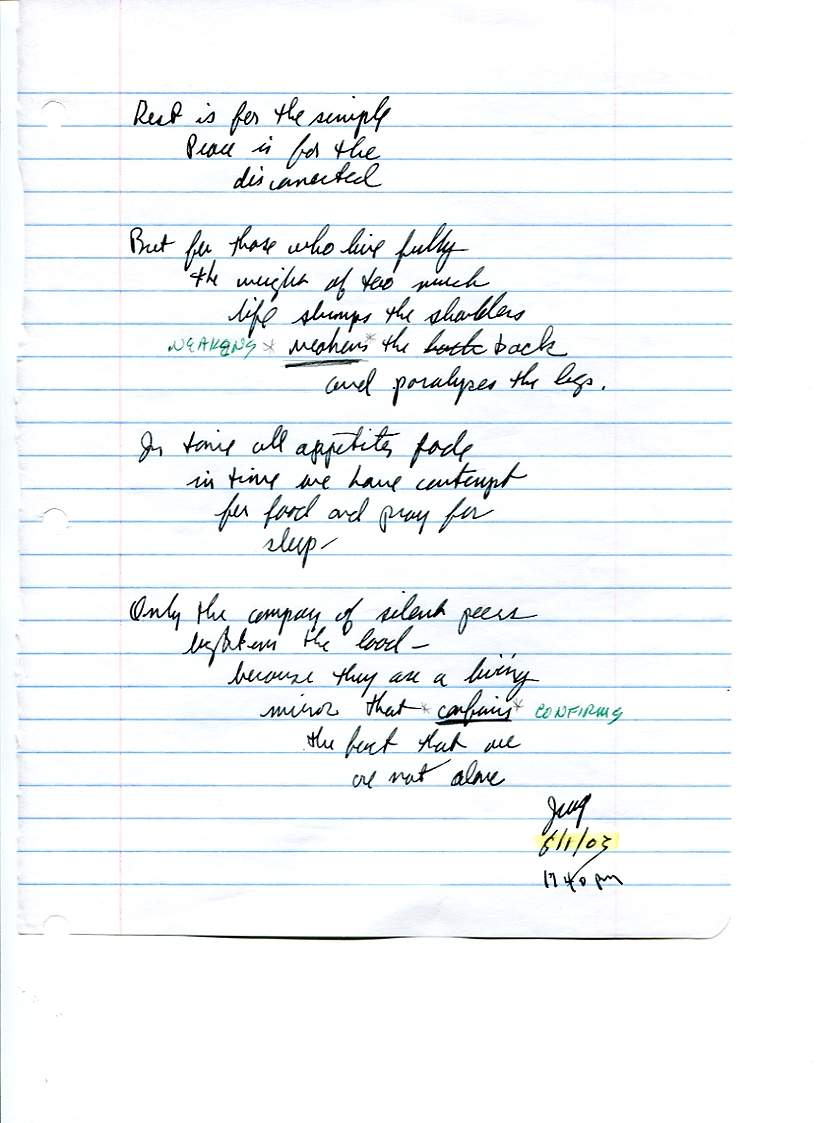 Rest is for the simple
Peace is for the
disconected
But for those who live fully
the weight of too much
life slumps the sholders
WEAKENS * weakens * the back back
and paralyses the legs.
In time all appetites fade
in time we have contempt
for food and pray for
sleep-
Only the company of silent peers
lightens the load -
because they are a living
mirror that * confirms * CONFIRMS
the fact that we
are not alone
6/1/03